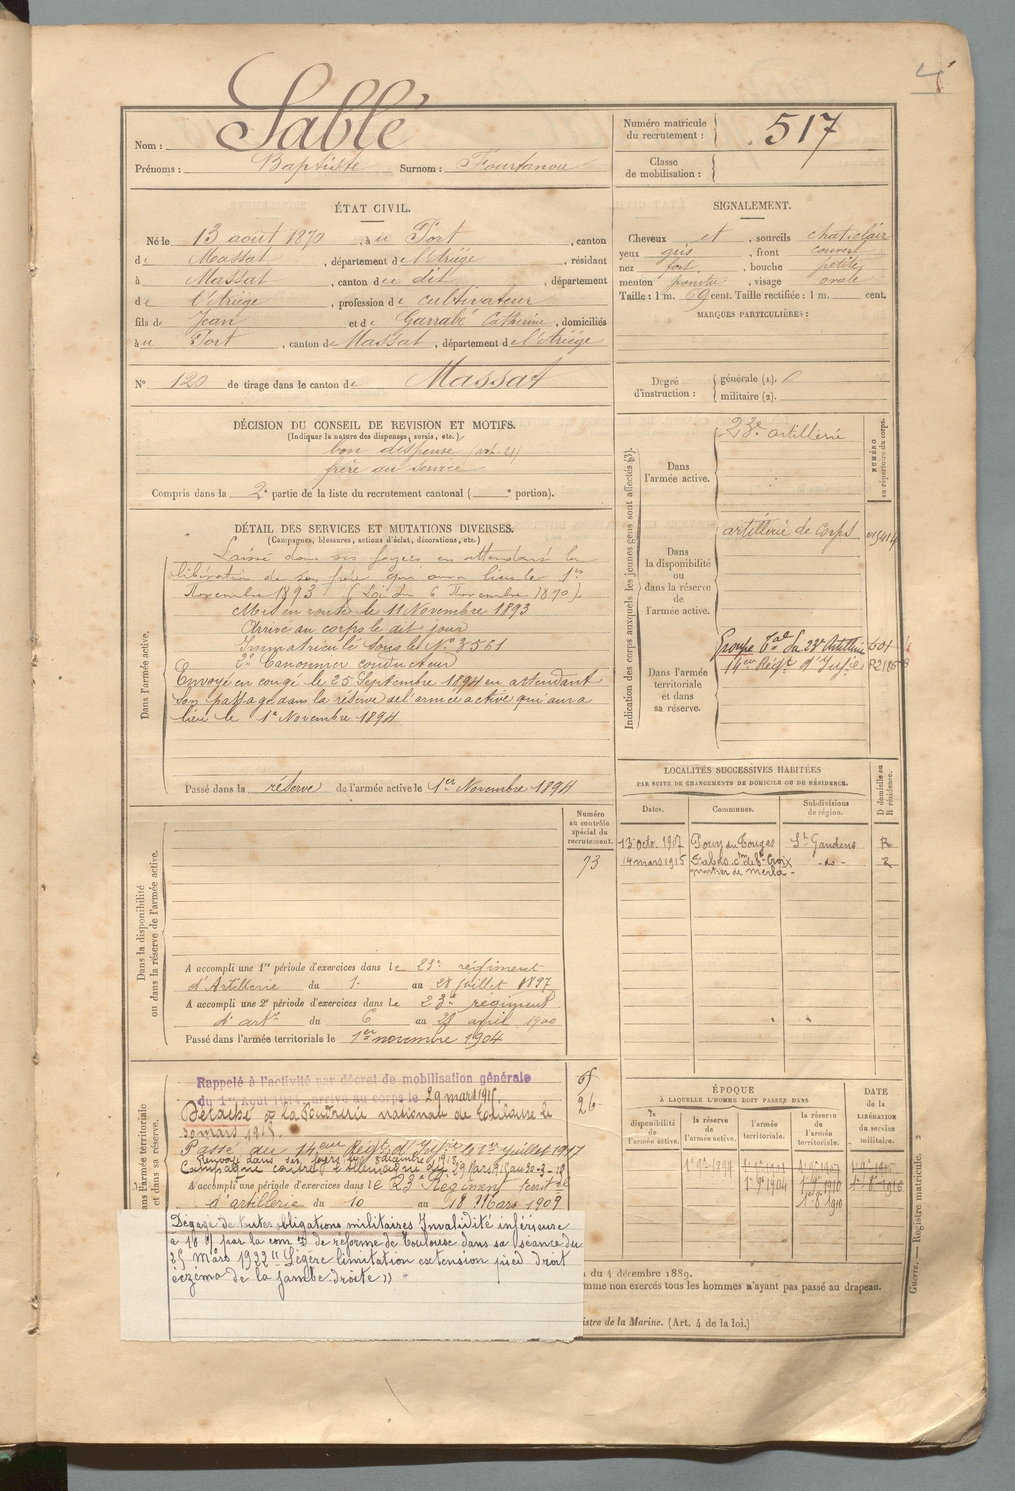 4
Nom : Sablé
Prénoms : Baptiste Surnom : Fourtanou
Numéro matricule du recrutement : 517
Classe de mobilisation :
ÉTAT CIVIL.
Né le 13 août 1870, à u Port, canton
de Massat, département de l'Ariège, résidant
à Massat, canton du dit, département
de l'Ariège, profession de cultivateur
fils de Jean et de Garrabé Catherine, domiciliés
à u Port, canton de Massat, département de l'Ariège
N° 120 de tirage dans le canton de Massat
SIGNALEMENT.
Cheveux et, sourcils chat. clair
yeux gris, front couvert
nez fort, bouche petite
menton pointu, visage ovale
Taille : 1 m. 69 cent. Taille rectifiée : 1 m. cent.
MARQUES PARTICULIÈRES :
Degré d'instruction : générale (1).
militaire (2).
DÉCISION DU CONSEIL DE REVISION ET MOTIFS.
(Indiquer la nature des dispenses, sursis, etc.)
bon dispensé (art. 21)
frère au service
Compris dans la 2e partie de la liste du recrutement cantonal ( e portion).
DÉTAIL DES SERVICES ET MUTATIONS DIVERSES.
(Campagnes, blessures, actions d'éclat, décorations, etc.)
Dans l'armée active.
Laissé dans ses foyers en attendant la
libération de son frère qui aura lieu le 1er
Novembre 1893 (Loi du 6 Novembre 1890).
Mis en route le 11 Novembre 1893
Arrivé au corps le dit jour
Immatriculé sous le N° 3561
2e Canonnier conducteur
Envoyé en congé le 25 Septembre 1894 en attendant
son passage dans la réserve de l'armée active qui aura
lieu le 1er Novembre 1894
Passé dans la réserve de l'armée active le 1er Novembre 1894
Indication des corps auxquels les jeunes gens sont affectés (3).
NUMÉRO au répertoire du corps.
Dans l'armée active.
23e artillerie
Dans la disponibilité ou dans la réserve de l'armée active.
artillerie de corps
Dans l'armée territoriale et dans sa réserve.
Groupe tal du 23e Artillerie 601
14er Régt d'Infie R2185
LOCALITÉS SUCCESSIVES HABITÉES
PAR SUITE DE CHANGEMENTS DE DOMICILE OU DE RÉSIDENCE.
Dates. Communes. Subdivisions de région. D domicile ou R résidence.
13 octo. 1907 Pouy du Touges St Gaudens R
14 mars 1915 cne de Ste Croix -do- R
quartier de Merla -
Dans la disponibilité ou dans la réserve de l'armée active.
Numéro au contrôle spécial du recrutement.
73
A accompli une 1re période d'exercices dans le 23e régiment
d'Artillerie du 1. au 28 Juillet 1897
A accompli une 2e période d'exercices dans le 23e régiment
d'artie du 6 au 28 avril 1900
Passé dans l'armée territoriale le 1er novembre 1904
Dans l'armée territoriale et dans sa réserve.
Rappelé à l'activité par décret de mobilisation générale
du 1er Août 1914, arrivé au corps le 29 mars 1915.
Détaché à la Poudrerie nationale de Toulouse le
30 mars 1915.
Passé au 14eme Régt d'Infie le 1er Juillet 1917
Renvoyé dans ses foyers le décembre 1918
Campagne contre l'Allemagne du 29 Mars 15 au 30-3-15
A accompli une période d'exercices dans le 23e Régiment territal
d'artillerie du 10 au 18 Mars 1909
Dégagé de toutes obligations militaires Invalidité inférieure
à 10 % par la com on de réforme de Toulouse dans sa séance du
25 Mars 1922 "Légère limitation extension pied droit
eczéma de la jambe droite"
ÉPOQUE
À LAQUELLE L'HOMME DOIT PASSER DANS
la disponibilité de l'armée active. la réserve de l'armée active. l'armée territoriale. la réserve de l'armée territoriale. DATE de la LIBÉRATION du service militaire.
1er 9bre 1894 1er 9bre 1904
du 4 décembre 1889.
omme non exercés tous les hommes n'ayant pas passé au drapeau.
istre de la Marine. (Art. 4 de la loi.)
Guerre. — Registre matricule. 2